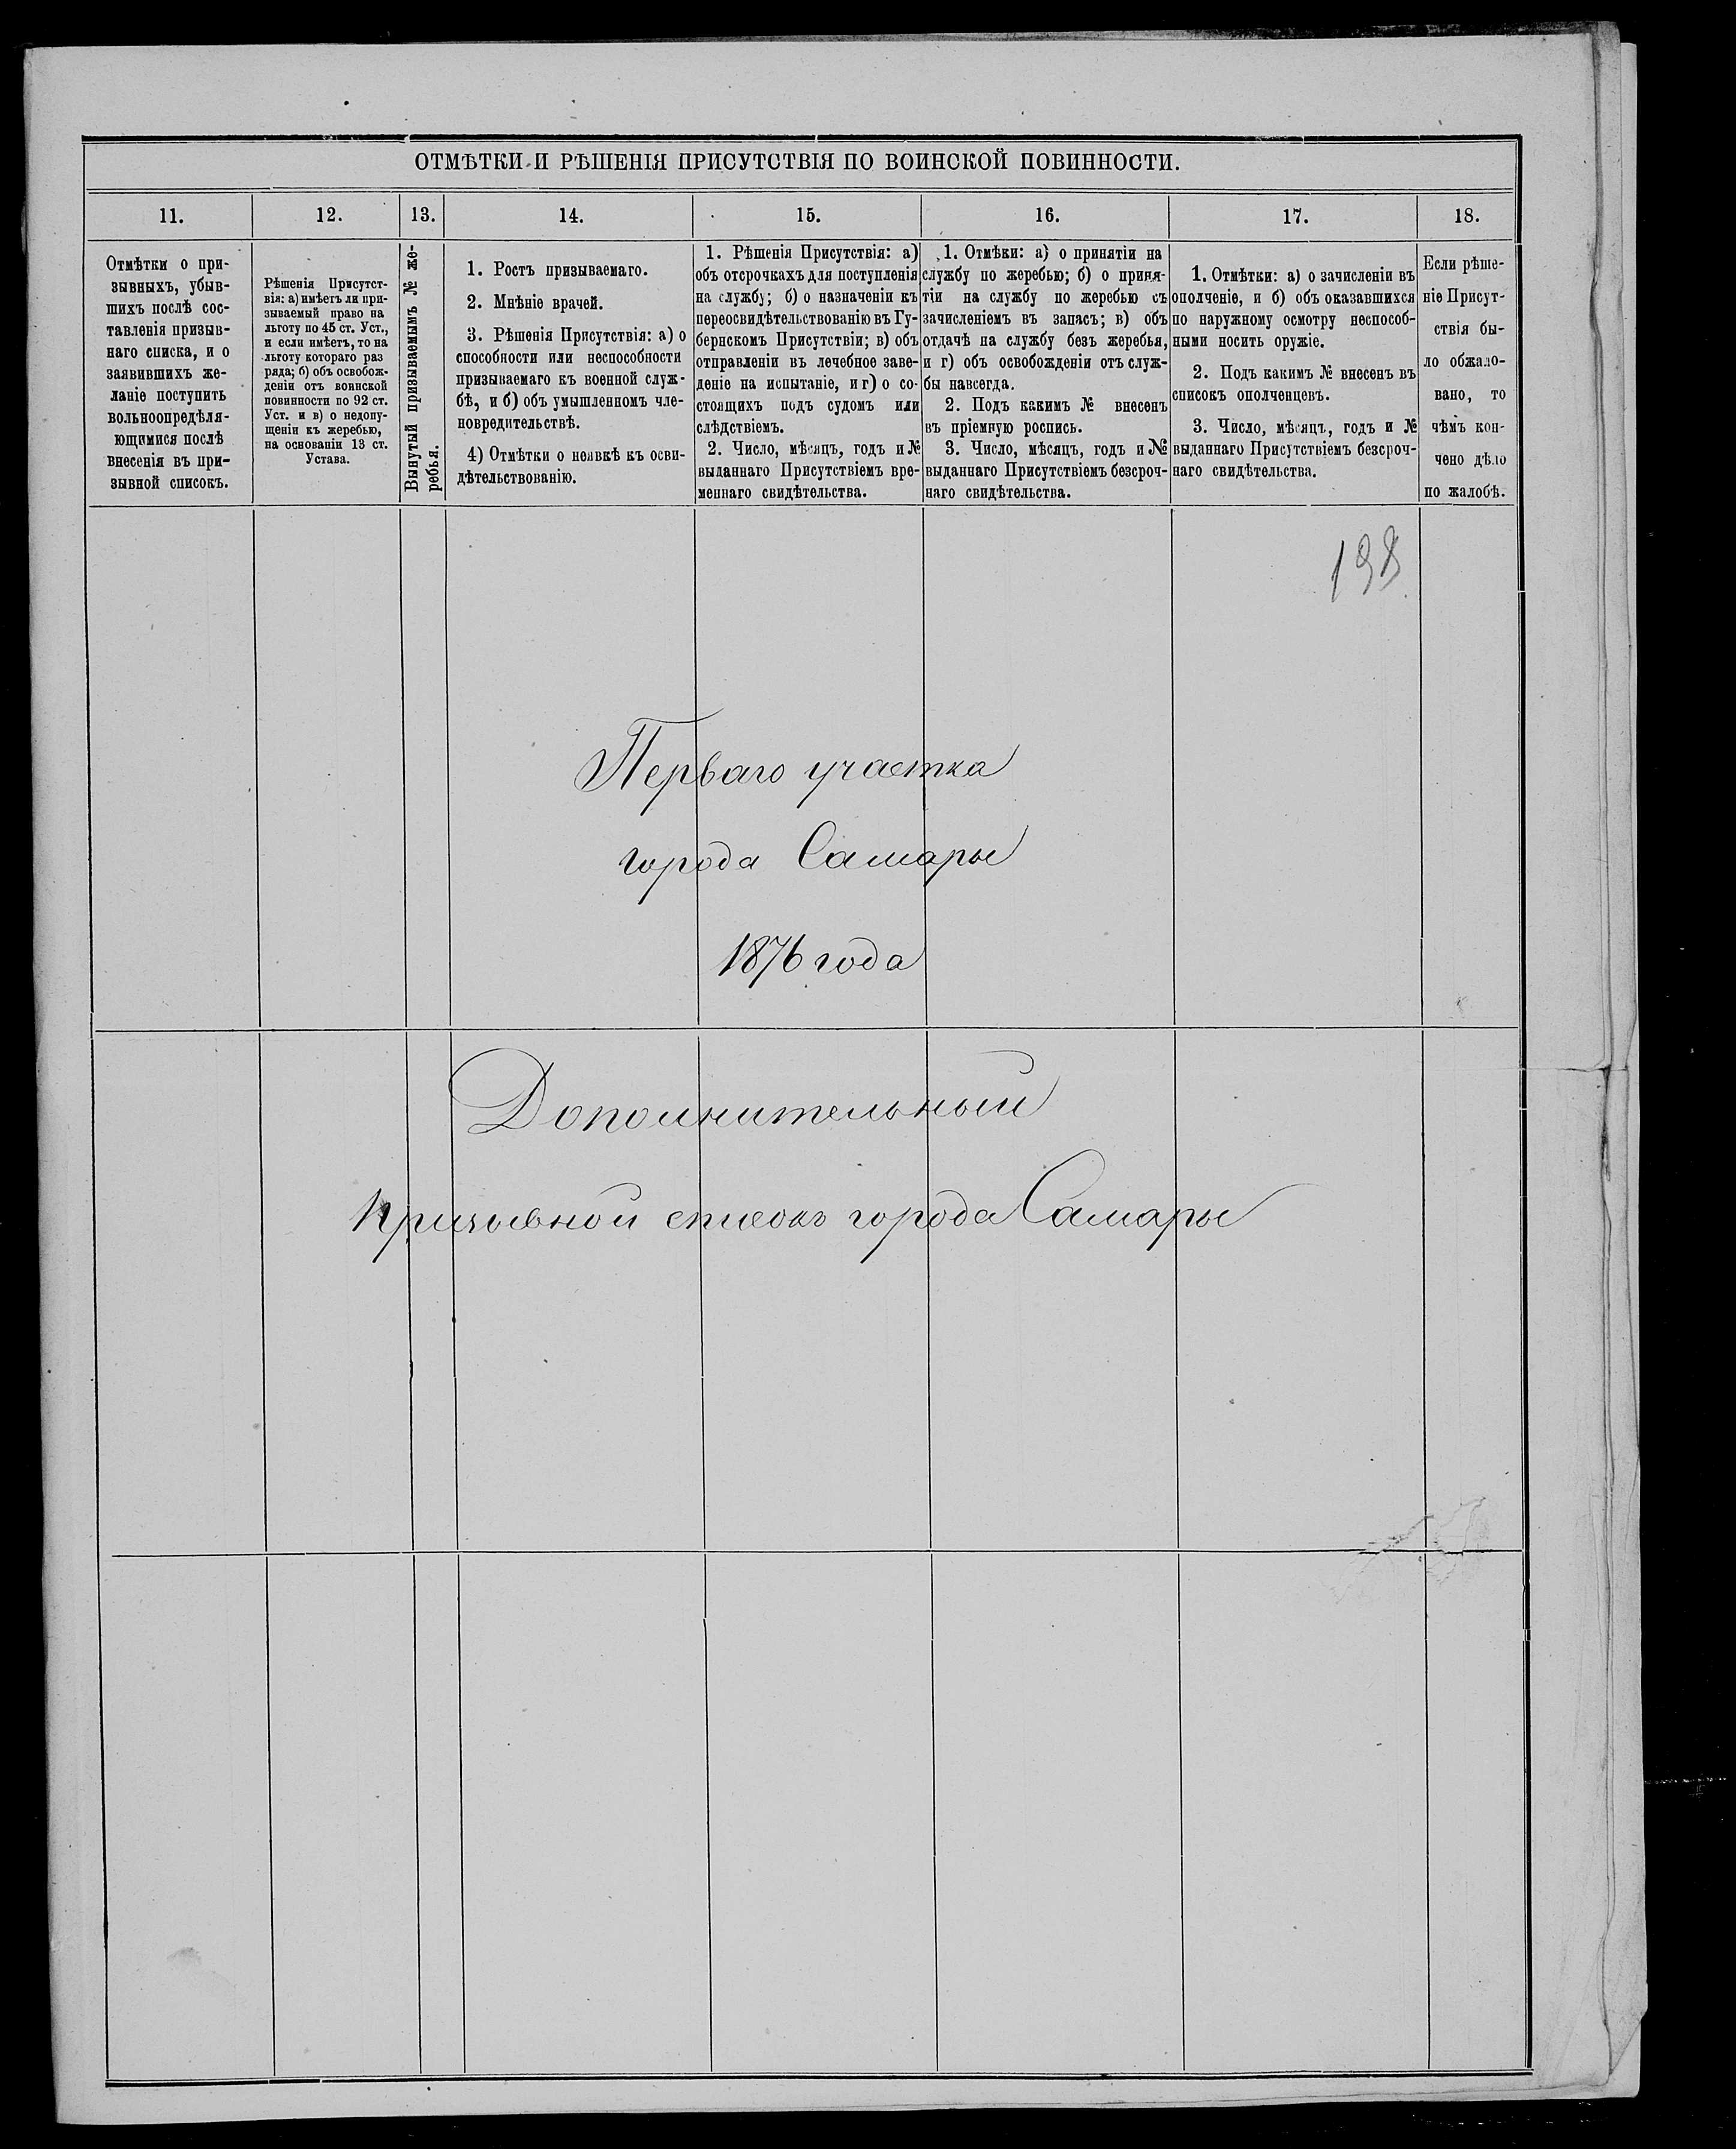 ОТМѢТКИ И РѢШЕНІЯ ПРИСУТСТВІЯ ПО ВОИНСКОЙ ПОВИННОСТИ.
11.
12.
13.
14.
15.
16.
17.
18.
Отмѣтки о при-
зывныхъ, убыв-
шихъ послѣ сос-
тавленія призыв-
наго списка, и о
заявившихъ же-
ланіе поступить
вольноопредѣля-
ющимися послѣ
внесенія въ при-
зывной списокъ.
Рѣшенія Присутст-
вія: а) имѣетъ ли при-
зываемый право на
льготу по 45 ст. Уст.,
и если имѣетъ, то на
льготу котораго раз
ряда; б) объ освобож-
деніи отъ воинской
повинности по 92 ст.
Уст. и в) о недопу-
щеніи къ жеребью,
на основаніи 13 ст.
Устава.
Вынутый призываемымъ № же-
ребья.
1. Ростъ призываемаго.
2. Мнѣніе врачей.
3. Рѣшенія Присутствія: а) о
способности или неспособности
призываемаго къ военной служ-
бѣ, и б) объ умышленномъ чле-
новредительствѣ.
4) Отмѣтки о неявкѣ къ осви-
дѣтельствованію.
1. Рѣшенія Присутствія: а)
объ отсрочкахъ для поступленія
на службу; б) о назначеніи къ
переосвидѣтельствованію въ Гу-
бернскомъ Присутствіи; в) объ
отправленіи въ лечебное заве-
деніе на испытаніе, и г) о со-
стоящихъ подъ судомъ или
слѣдствіемъ.
2. Число, мѣсяцъ, годъ и №
выданнаго Присутствіемъ вре-
меннаго свидѣтельства.
1. Отмѣки: а) о принятіи на
службу по жеребью; б) о приня-
тіи на службу по жеребью съ
зачисленіемъ въ запасъ; в) объ
отдачѣ на службу безъ жеребья,
и г) объ освобожденіи отъ служ-
бы навсегда.
2. Подъ какимъ № внесенъ
въ пріемную роспись.
3. Число, мѣсяцъ, годъ и №
выданнаго Присутствіемъ безсроч-
наго свидѣтельства.
1. Отмѣтки: а) о зачисленіи въ
ополченіе, и б) объ оказавшихся
по наружному осмотру неспособ-
ными носить оружіе.
2. Подъ какимъ № внесенъ въ
списокъ ополченцевъ.
3. Число, мѣсяцъ, годъ и №
выданнаго Присутствіемъ безсроч-
наго свидѣтельства.
Если рѣше-
ніе Присут-
ствія бы-
ло обжало-
вано, то
чѣмъ кон-
чено дѣло
по жалобѣ.
198
Перваго участка
города Самары
1876 года
Дополнительный
призывной списокъ города Самары